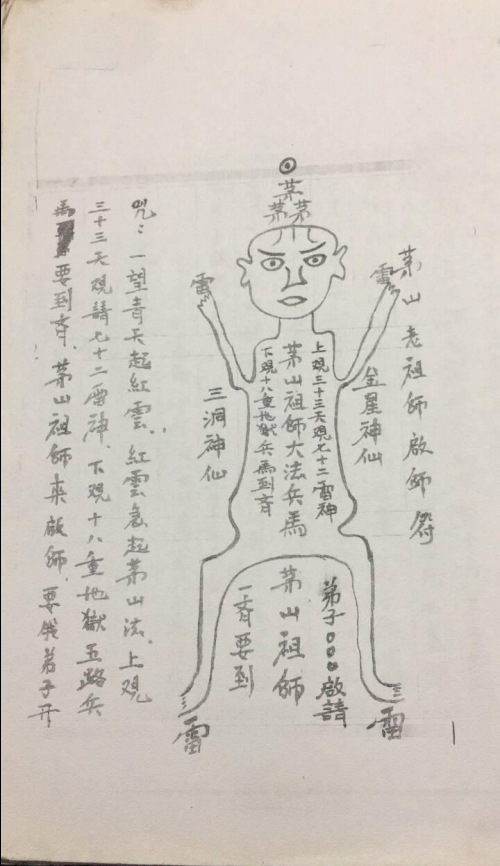 茅山老祖師啟師符
茅
茅茅
雷
雷
金星神仙
三洞神仙
上覌三十三天覌七十二雷神
茅山祖師大法兵馬
下覌十八重地獄兵馬到齊
弟子○○○啟請
茅山祖師
一齊要到
雷
雷
咒：一望青天起紅雲．紅雲
起茅山法．上覌
三十三天覌請七十二雷神．下覌十八重地獄五路兵
馬
要到齊．茅山祖師來啟師．要
弟子开